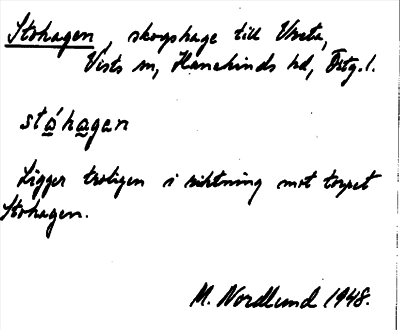 Stohagen, skogshage till Unsta,
Vists sn, Hanekinds hd, Östg. l.
stá̱ha̱gan
Ligger troligen i riktning mot torpet
Stohagen.
M. Nordlund 1948.